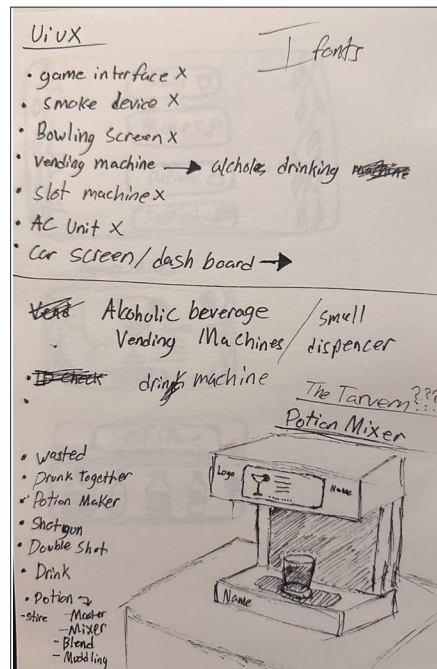 Ui UX
I fonts
• game interface X
• smoke device X
• Bowling screen X
• Vending machine → alcholes drinking
• Slot machine X
• AC Unit X
• Car screen / dash board →
Alcoholic beverage
Vending Machines / small dispencer
• ID check drink machine
The Tarvern???
Potion Mixer
• Wasted
• Drunk Together
• Potion Maker
• Shotgun
• Double Shot
• Drink
• Potion
- Master
- Mixer
- Blend
- Muddling
Logo
Name
Name